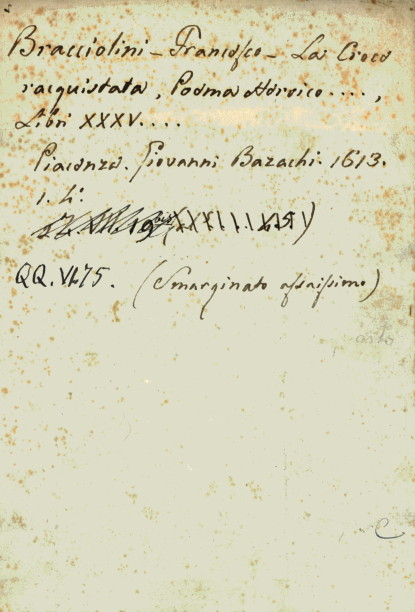 Bracciolini - Francesco - La Croce
racquistata, Poema Heroico....,
Libri XXXV....
Piacenza. Giovanni Bazachi. 1613.
1. 4°.
QQ.VI.75. (Smarginato assaissimo)